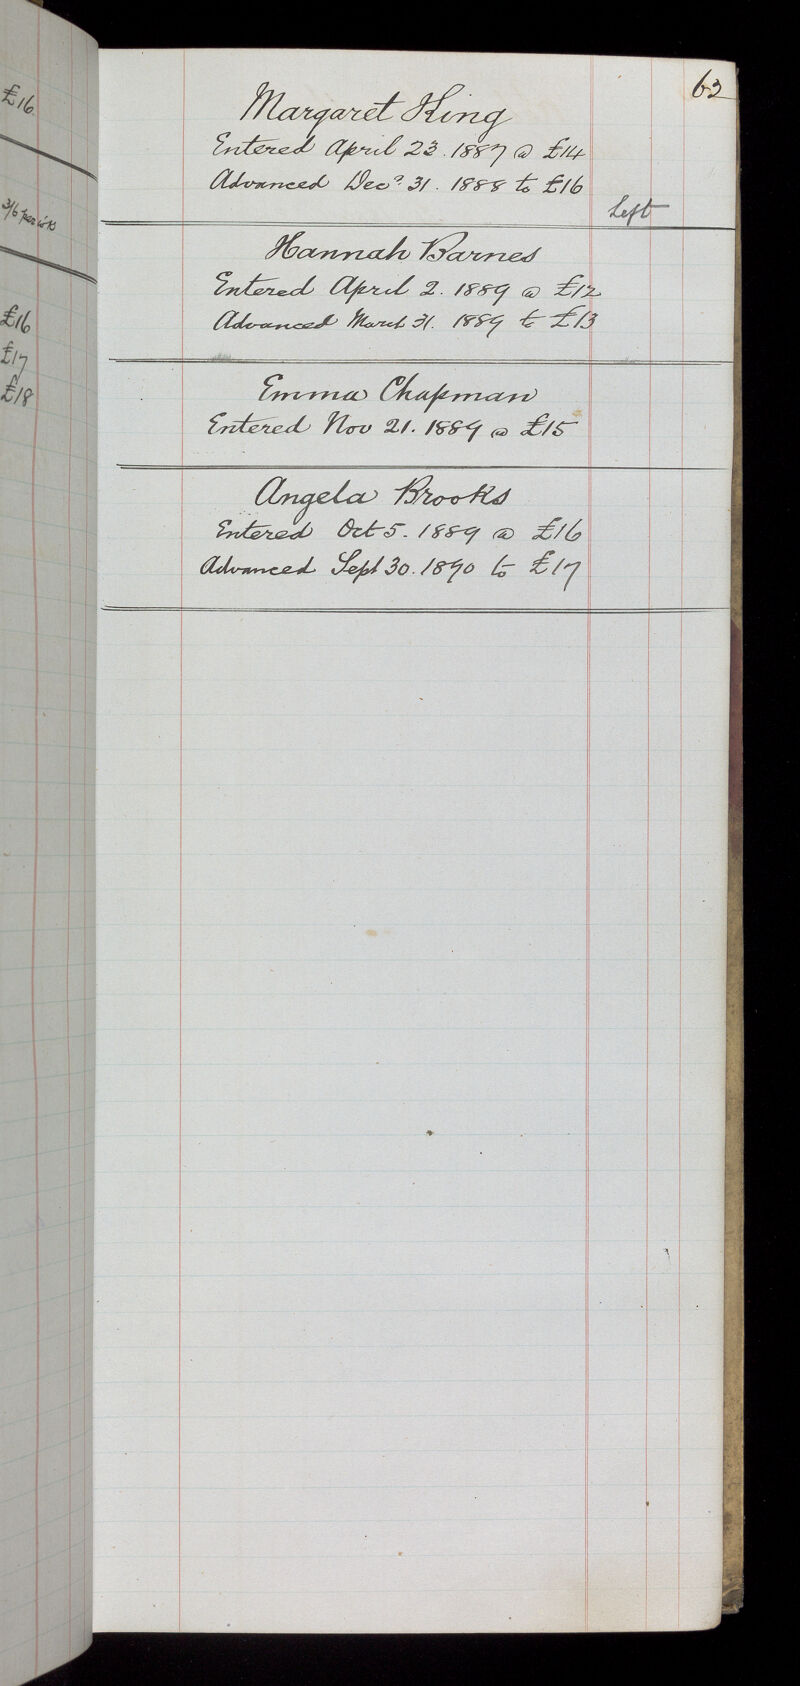 £16
3/6 per wk
£16
£17
£18
63
Margaret King
Entered April 23. 1887 @ £14
Advanced Decr 31. 1888 to £16
Left
Hannah Barnes
Entered April 2. 1889 @ £12
Advanced March 31. 1889 to £13
Emma Chapman
Entered Nov 21. 1889 @ £15
Angela Brooks
Entered Oct 5. 1889 @ £16
Advanced Sept 30. 1890 to £17